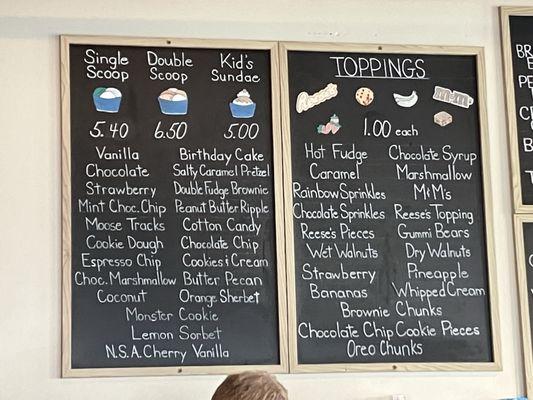 Single Scoop
Double Scoop
Kid's Sundae
5.40
6.50
5.00
Vanilla
Chocolate
Strawberry
Mint Choc. Chip
Moose Tracks
Cookie Dough
Espresso Chip
Choc. Marshmallow
Coconut
Birthday Cake
Salty Caramel Pretzel
Double Fudge Brownie
Peanut Butter Ripple
Cotton Candy
Chocolate Chip
Cookies & Cream
Butter Pecan
Orange Sherbet
Monster Cookie
Lemon Sorbet
N.S.A. Cherry Vanilla
TOPPINGS
1.00 each
Hot Fudge
Caramel
Rainbow Sprinkles
Chocolate Sprinkles
Reese's Pieces
Wet Walnuts
Strawberry
Bananas
Chocolate Syrup
Marshmallow
M&M's
Reese's Topping
Gummi Bears
Dry Walnuts
Pineapple
Whipped Cream
Brownie Chunks
Chocolate Chip Cookie Pieces
Oreo Chunks